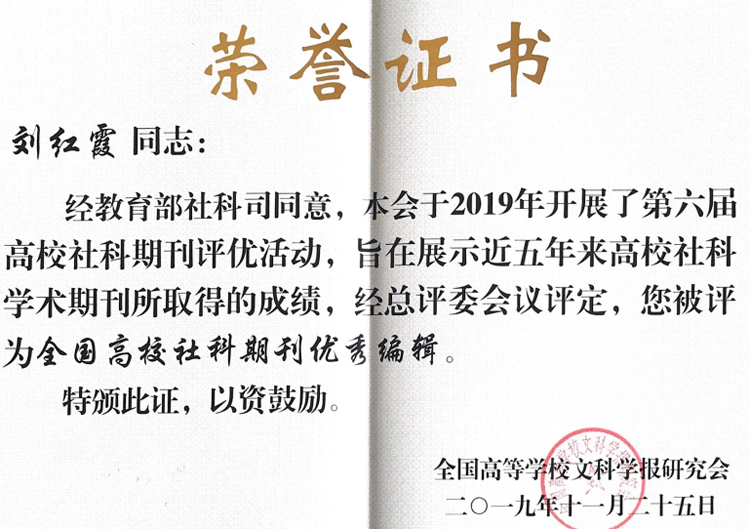 荣誉证书
刘红霞 同志：
经教育部社科司同意，本会于2019年开展了第六届
高校社科期刊评优活动，旨在展示近五年来高校社科
学术期刊所取得的成绩，经总评委会议评定，您被评
为全国高校社科期刊优秀编辑。
特颁此证，以资鼓励。
全国高等学校文科学报研究会
二〇一九年十一月二十五日